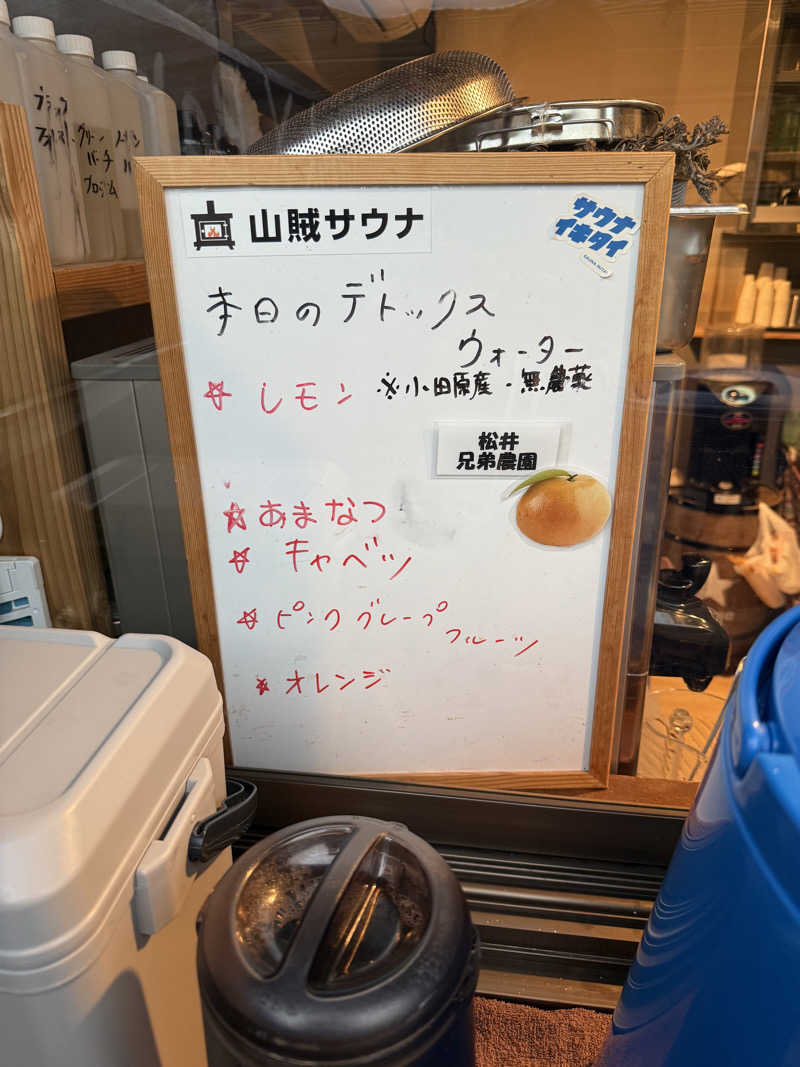 山賊サウナ
サウナ
イキタイ
本日のデトックス
ウォーター
☆ レモン ※小田原産・無農薬
松井
兄弟農園
☆ あまなつ
☆ キャベツ
☆ ピンクグレープ
フルーツ
☆ オレンジ
ブラック
グリーン
バーチ